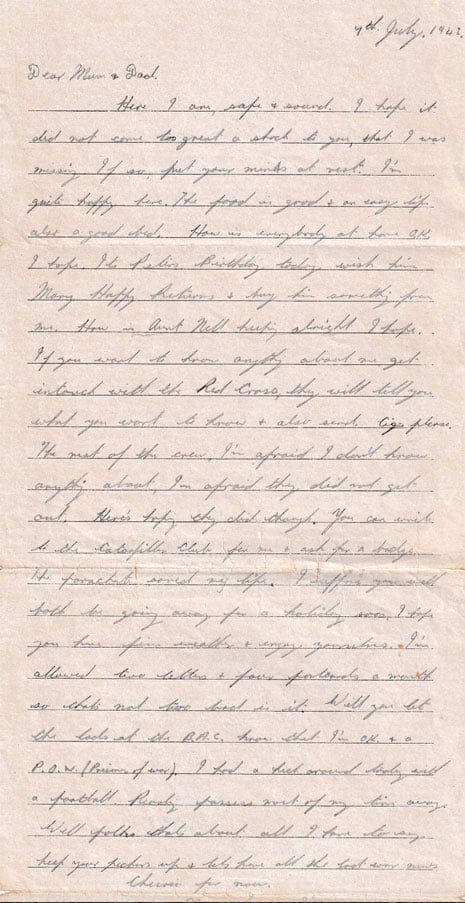 7th July, 1943.
Dear Mum & Dad.
Here I am, safe & sound. I hope it
did not come too great a shock to you, that I was
missing. If so, put your minds at rest. I'm
quite happy here. The food is good & an easy life
also a good bed. How is everybody at home O.K.
I hope. Its Peters Birthday today wish him
Many Happy Returns & buy him something from
me. How is Aunt Nell keeping alright I hope.
If you want to know anything about me get
intouch with the Red Cross, they will tell you
what you want to know & also send Cigs please.
The rest of the crew, I'm afraid I don't know
anything about, I'm afraid they did not get
out. Here's hoping they did though. You can write
to the Caterpillar Club for me & ask for a badge.
The parachute saved my life. I suppose you will
both be going away for a holiday soon, I hope
you have fine weather & enjoy yourselves. I'm
allowed two letters & four postcards a month
so thats not two bad is it. Will you let
the lads at the B.A.C. know that I'm O.K. & a
P.O.W. (Prisoner of war). I had a kick around today with
a football. Reading passes most of my time away.
Well folks thats about all I have to say
keep your peckers up & lets have all the last war news
Cheerio for now.